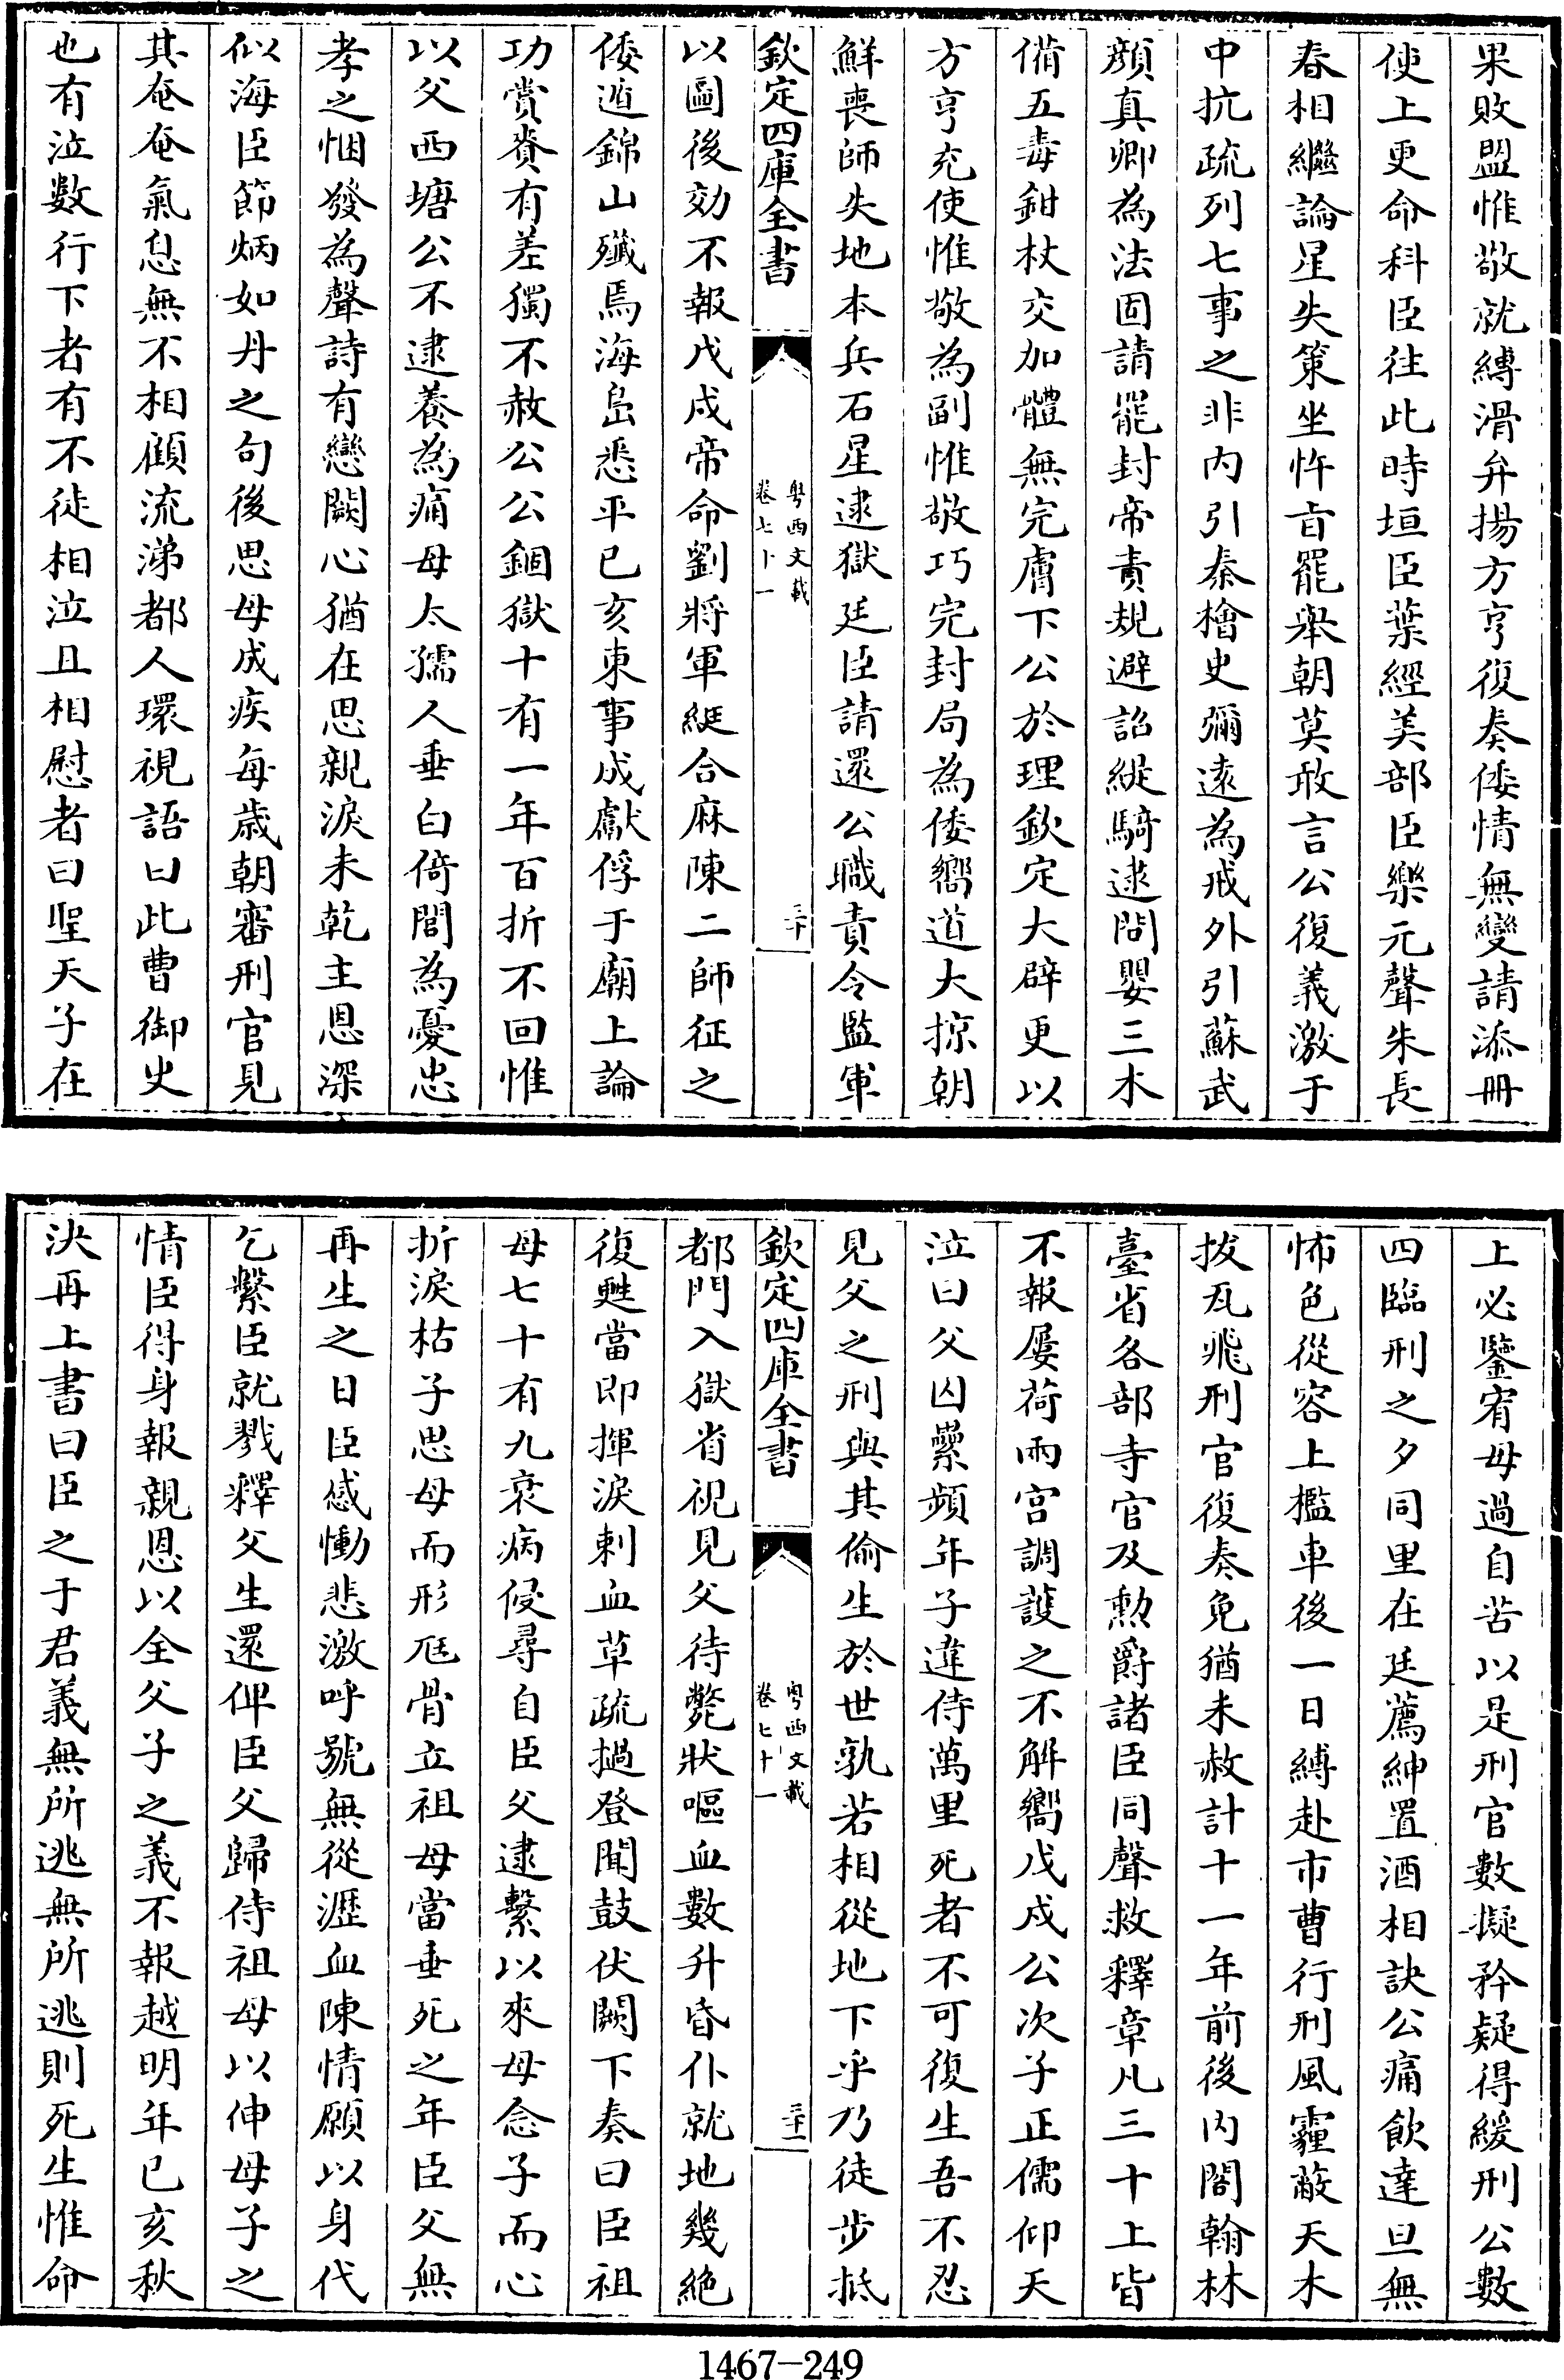 果敗盟惟敬就縛滑弁揚方亨復奏倭情無變請添冊
使上更命科臣往此時垣臣葉經美部臣樂元聲朱長
春相繼論星失策坐忤㫖罷舉朝莫敢言公復義激于
中抗疏列七事之非内引秦檜史彌遠為戒外引蘇武
顔真卿為法固請罷封帝責規避詔緹騎逮問嬰三木
備五毒鉗杖交加體無完膚下公於理欽定大辟更以
方亨充使惟敬為副惟敬巧完封局為倭嚮道大掠朝
鮮喪師失地本兵石星逮獄廷臣請還公職責令監軍
欽定四庫全書
粤西文載
卷七十一
三十
以圖後効不報戊戌帝命劉將軍綎合麻陳二師征之
倭遁錦山殲焉海島悉平己亥東事成獻俘于廟上論
功賞賚有差獨不赦公公錮獄十有一年百折不回惟
以父西塘公不逮養為痛母太孺人垂白倚閭為憂忠
孝之悃發為聲詩有戀闕心猶在思親淚未乾主恩深
似海臣節炳如丹之句後思母成疾每歲朝審刑官見
其奄奄氣息無不相顧流涕都人環視語曰此曹御史
也有泣數行下者有不徒相泣且相慰者曰聖天子在
上必鑒宥毋過自苦以是刑官數擬矜疑得緩刑公數
四臨刑之夕同里在廷薦紳置酒相訣公痛飲達旦無
怖色從容上檻車後一日縛赴市曹行刑風霾蔽天木
拔瓦飛刑官復奏免猶未赦計十一年前後内閣翰林
臺省各部寺官及勲爵諸臣同聲救釋章凡三十上皆
不報屢荷兩宫調護之不解嚮戊戌公次子正儒仰天
泣曰父囚纍頻年子違侍萬里死者不可復生吾不忍
見父之刑與其偷生於世孰若相從地下乎乃徒步抵
欽定四庫全書
粤西文載
卷七十一
三十一
都門入獄省視見父待斃狀嘔血數升昏仆就地幾絶
復甦當即揮淚刺血草疏撾登聞鼓伏闕下奏曰臣祖
母七十有九衰病侵尋自臣父逮繫以來母念子而心
折淚枯子思母而形尫骨立祖母當垂死之年臣父無
再生之日臣感慟悲激呼號無從瀝血陳情願以身代
乞繫臣就戮釋父生還俾臣父歸侍祖母以伸母子之
情臣得身報親恩以全父子之義不報越明年己亥秋
決再上書曰臣之于君義無所逃無所逃則死生惟命
1467-249